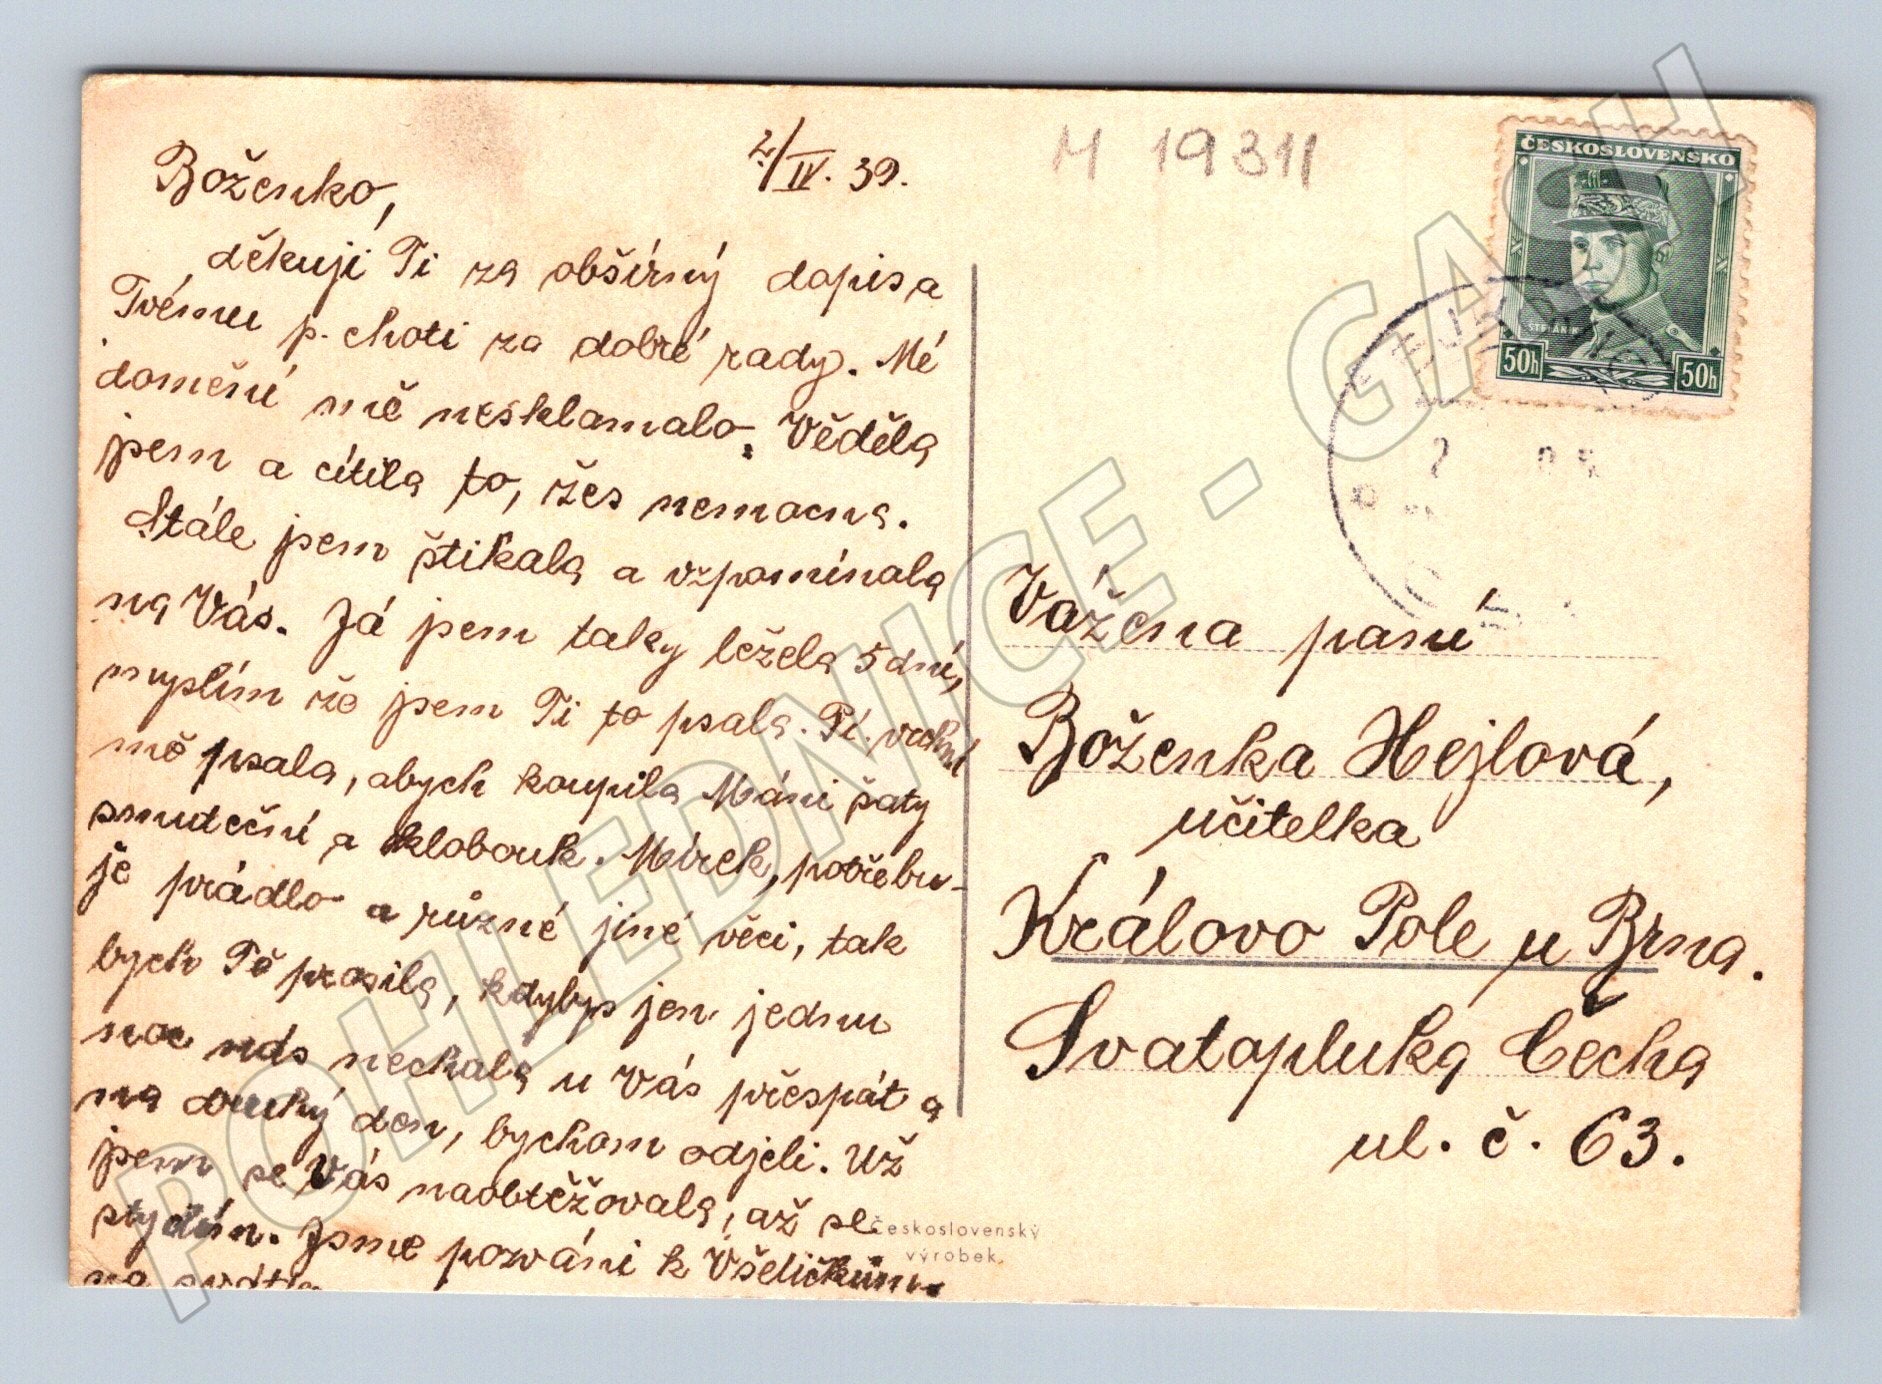 2./IV. 39.
Boženko,
děkuji Ti za obšírný dopis a
Tvému p. choti za dobré rady. Mé
domění mě nesklamalo. Věděla
jsem a cítila to, žes nemocna.
Stále jsem štikala a vzpomínala
na Vás. Já jsem taky ležela 5 dní,
myslím že jsem Ti to psala. Pí. vrchní
mě psala, abych koupila Máni šaty
smuteční a klobouk. Mirek, potřebu-
je prádlo a různé jiné věci, tak
bych Tě prosila, kdybys jen jednu
noc nás nechala u Vás přespát a
na druhý den, bychom odjeli. Už
jsem se Vás naobtěžovala, až se
stydím. Jsme pozváni k Všeličkům.
na svátky
Československý
výrobek
M 19311
ČESKOSLOVENSKO
ŠTEFÁNIK
50h 50h
Vážena paní
Boženka Hejlová,
učitelka
Královo Pole u Brna.
Svatopluka Čecha
ul. č. 63.
POHLEDNICE - GASH